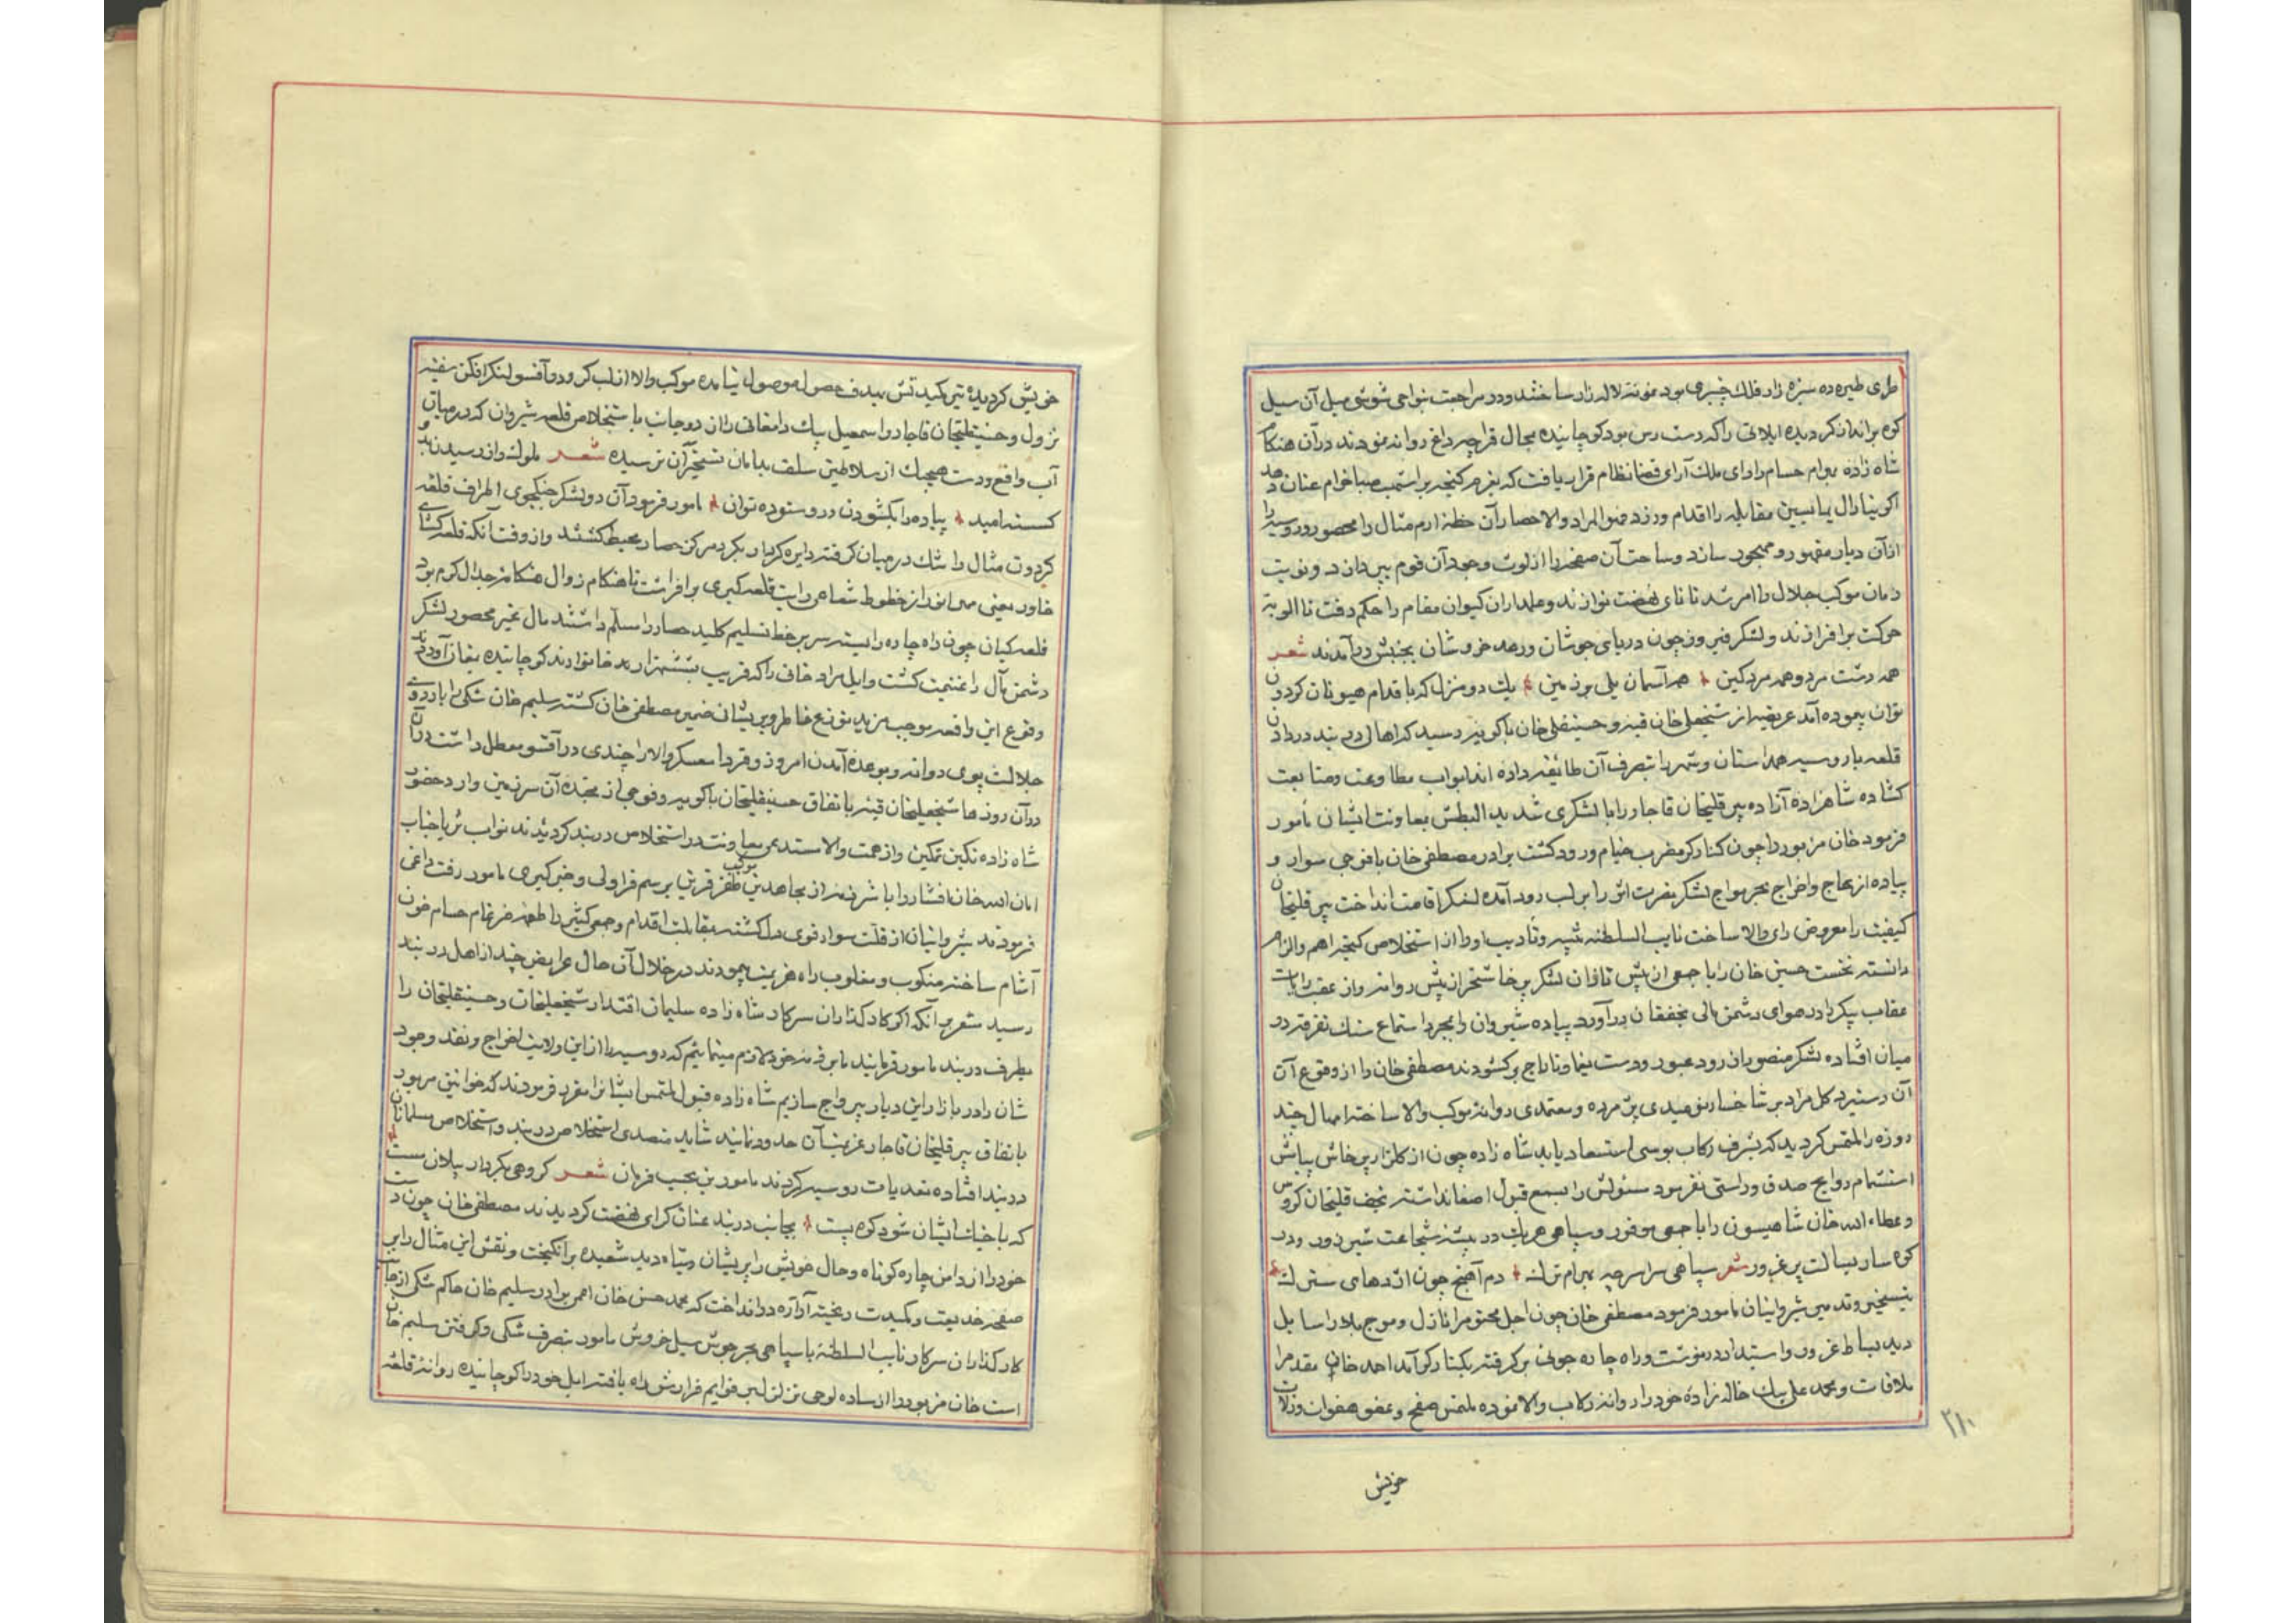 طری طیره ده سبزه زار فلک چنبری بود نمونه لاله زار ساختند و در مراجعت نواحی شوشی میل آن سیل
کوه برانداز گردیده ایلاتی را که دست رس بود کوچانیده بمحال قراجه داغ روانه نمودند در آن هنگام
شاه زاده بهرام حسام را رای ملک آرای قضا نظام قرار یافت که بعزم گنجه بر اشهب صبا خرام عنان دهد
اگر ینارال یمانسین مقابله را اقدام ورزد فهو المراد والا حصار آن خطه ارم مثال را محصور و روسیه را
از آن دیار مقهور و مهجور ساند و ساحت آن صفحه را از لوث وجود آن قوم بپردازد و نوبت
زمان موکب جلال را امر شد تا نای نهضت نوازند و علمداران کیوان مقام را حکم رفت تا الویه
حرکت برافرازند و لشکر فیروز چون دریای جوشان و رعد خروشان بجنبش درآمدند شعر
همه دشت مرد و همه مرد کین همه آسمان یلی بر زمین یک دو منزل که باقدام هیونان گردون
توان پیموده آمد عریضه از شیخعلی خان قبه و حسینقلی خان باکویه رسید که اهالی دربند دروازه
قلعه با روسیه همداستان و شهر را بتصرف آن طائفه داده اند ابواب مطاوعت و متابعت
گشاده شاهزاده آزاده پیرقلیخان قاجار را با لشکری شدید البطش بمعاونت ایشان مأمور
فرمود خان مزبور را چون کنار کر مضرب خیام ورود گشت برادر مصطفی خان با فوجی سوار و
پیاده از عاج و اخراج بحر مواج لشکر نصرت اثر را بر لب رود آمده لنگر اقامت انداخت پیرقلیخان
کیفیت را معروض رای والا ساخت نایب السلطنه تنبیه و تأدیب او را از استخلاص گنجه اهم و الزم
دانسته نخست حسین خان را با جمعی از پیش تازان لشکر پرخاشخر از پیش روانه و از عقب رایات
عقاب پیکر را در هوای دشمن مالی بخفقان درآورد پیاده شیروان را بمجرد استماع سنگ تفرقه در
میان افتاده لشکر منصور از رود عبور و دست یغما و تاراج برگشودند مصطفی خان را از وقوع آن
آن دستبرد گل مراد بر شاخسار نومیدی پژمرده و معتمدی روانه موکب والا ساخته امهال چند
روزه را ملتمس گردید که بشرف رکاب بوسی استسعاد یابد شاه زاده چون از گلزار پرخاش بیانش
استشمام روایح صدق و راستی نفرمود مسئولش را بسمع قبول اصغا نداشته نجف قلیخان گروس
و عطاء الله خان شاهیسون را با جمعی موفور و سپاهی هر یک در بیشه شجاعت شیر زور و در
کوهسار بسالت پر غرور شعر سپاهی سراسر چه بهرام ترک دم آهنج چون اژدهای سترک
بتسخیر و تدمیر شیروانیان مأمور فرمود مصطفی خان چون اجل محتوم را نازل و موج بلا را سایل
دید بساط غرور و استبداد درنوشت و راه چاره جوئی برگرفته بکنار کر آمد احمد خان مقدم را
ملاقات و محمد علی بیک خاله زاده خود را روانه رکاب والا نموده ملتمس صفح و عفو هفوات و زلات
خویش
۲۱۰
خویش گردید تیر کید تش بهدف حصول موصول نیامده موکب والا از لب کر و رود آقسو لنگر افکن سفینه
نزول و حسینقلیخان قاجار و اسمعیل بیک دامغانی را از دو جانب باستخلاص قلعه شیروان که در میان
آب واقع و دست هیچیک از سلاطین سلف بدامان تسخیر آن نرسیده شعر ملوک را ز رسیدن بدو
گسسته امید پیاده را بگشودن در و ستوده توان مأمور فرمود آن دو لشکر جنگجوی اطراف قلعه
گردون مثال را تنگ در میان گرفته دایره کردار بگرد مرکز حصار محیط گشتند و از وقت آنکه قلعه گشای
خاور یعنی مهر انور از خطوط شعاعی رایت قلعه گیری برافراشت تا هنگام زوال هنگامه جدال گرم بود
قلعه گیان چون راه چاره را بسته سر بر خط تسلیم کلید حصار را مسلم داشتند مال غیر محصور لشکر
دشمن مال را غنیمت گشت و ایل مراد خانی را که قریب بششهزار بد خانوادند کوچانیده بمغان آوردند
وقوع این واقعه موجب مزید توزع خاطر و پریشان ضمیر مصطفی خان گشته سلیم خان شکی را باردوی
جلالت پوی روانه و بوعده آمدن امروز و فردا معسکر والا را چندی در آقسو معطل داشت در آن
در آن روزها شیخعلیخان قبه باتفاق حسینقلیخان باکویه و فوجی از نخبه آن سرزمین وارد حضور
شاه زاده نگین تمکین و از همت والا مستدعی معاونت در استخلاص دربند گردیدند نواب ثریا جناب
امان الله خان افشار را با شرذمه از مجاهدین موکب ظفر قرین برسم قراولی و خبر گیری مأمور رفت داغی
فرمودند شیروانیان از قلت سوار قوی دل گشته بمقابلت اقدام و جمعی کثیر را طعمه ضرغام حسام خون
آشام ساخته منکوب و مغلوب راه هزیمت پیمودند در خلال آن حال عرایض چند از اهل دربند
رسید مشعر بر آنکه اگر کارگذاران سرکار شاه زاده سلیمان اقتدار شیخعلیخان و حسینقلیخان را
بطرف دربند مأمور فرمایند ما بر ذمه خود لازم مینمائیم که روسیه را از این ولایت اخراج و نقد وجود
شان را در بازار این دیار بیرواج سازیم شاه زاده قبول ملتمس ایشانرا مقرر فرمودند که خوانین مزبور
باتفاق پیرقلیخان قاجار عزیمت آن حدود نمایند شاید متصدی استخلاص دربند و استخلاص مسلمانان
دربند افتاده تعدیات روسیه گردند مأمورین بحسب فرمان شعر گروهی بکردار پیلان مست
که با خیلشان شود کوه پست بجانب دربند عنان گرای نهضت گردیدند مصطفی خان چون دست
خود را از دامن چاره کوتاه و حال خویش را پریشان و تباه دید شعبده برانگیخت و نقش این مثال را بر
صفحه خدیعت و مکیدت ریخته آوازه در انداخت که محمد حسن خان اعمی برادر سلیم خان حاکم شکی از جانب
کارگذاران سرکار نایب السلطنه با سپاهی بحر جوش سیل خروش مأمور بتصرف شکی و گرفتن سلیم خان
است خان مزبور را از ساده لوحی تزلزل بر قوایم قرارش راه یافته ایل خود را کوچانیده روانه قلعه